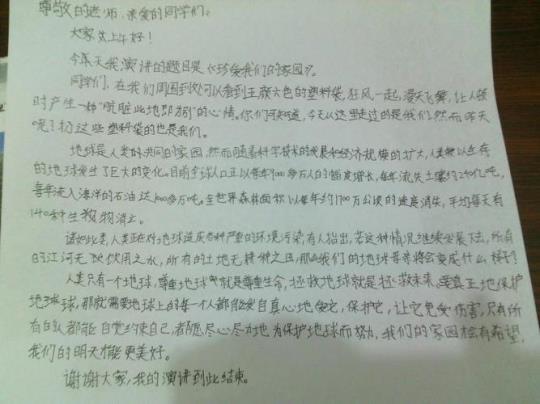 尊敬的老师、亲爱的同学们:
大家上午好!
今天我演讲的题目是《珍爱我们的家园》。
同学们,在我们周围到处可以看到五颜六色的塑料袋,狂风一起,漫天飞舞,让人顿
时产生一种"肮脏此地即为"的心情。你们可知道,今天从这里走过的是我们,然而昨天
呢?扔这些塑料袋的也是我们。
地球是人类的共同的家园,然而随着科学技术的发展和经济规模的扩大,人类赖以生存
的地球发生了巨大的变化。目前全球人口正以每年 万人的幅度增长,每年流失土壤约240亿吨,
每年流入海洋的石油达 多万吨。全世界森林面积以每年约1700万公顷的速度消失,平均每天有
140种生物消亡。
诸如此类,人类正在对地球造成各种严重的环境污染,有人指出,若这种情况继续发展下去,所有
的江河无可饮用之水,所有的土地无耕种之田,那么我们的地球等着将会变成什么样子?
人类只有一个地球,尊重地球 就是尊重生命,拯救地球就是拯救未来,要真正地保护
地球,那就需要地球上的每一个人都能发自真心地爱它,保护它,让它免受伤害,只有所
有的人都能自觉约束自己,都愿尽心尽力地为保护地球而努力,我们的家园才会有希望,
我们的明天才能更美好。
谢谢大家,我的演讲到此结束。